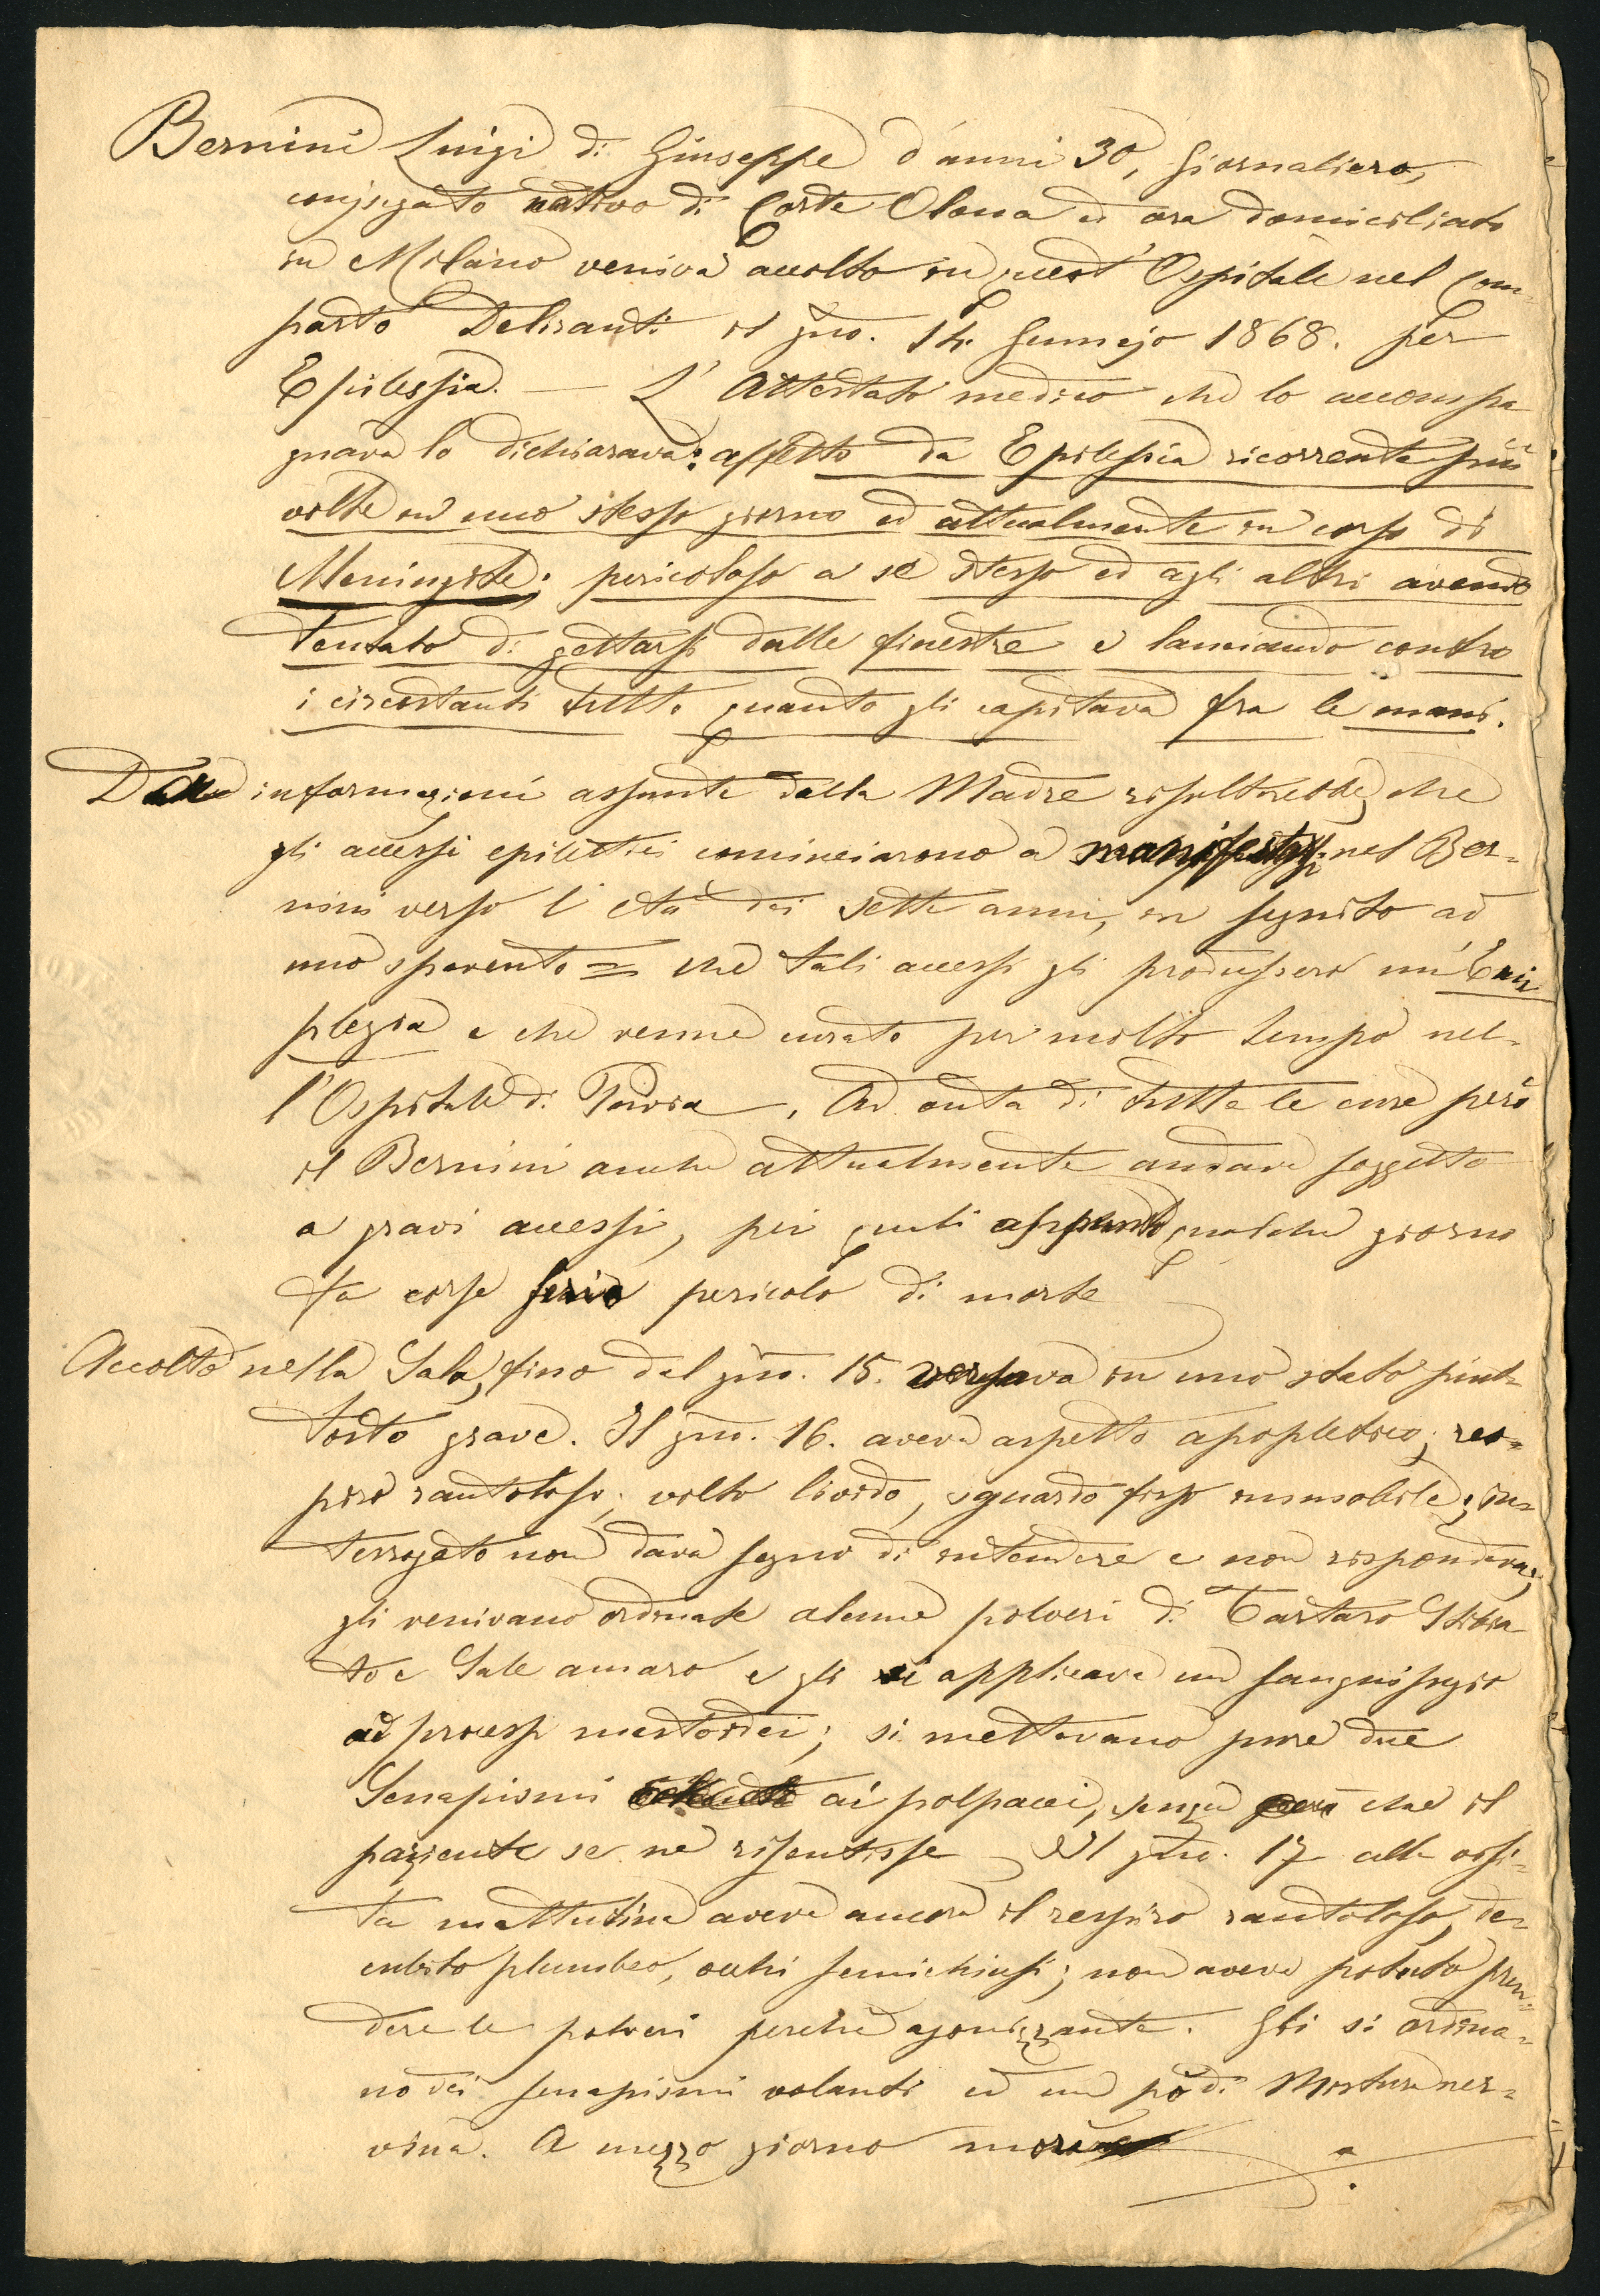 Bernini Luigi di Giuseppe d'anni 30, Giornaliero,
conjugato nativo di Corte Olona ed ora domiciliato
in Milano veniva accolto in quest'Ospitale nel Com-
parto Deliranti il gno. 14. Gennajo 1868. per
Epilessia. — L'Attestato medico che lo accompa
gnava lo dichiarava: affetto da Epilessia ricorrente più
volte in uno stesso giorno ed attualmente in corso di
Meningite; pericoloso a sè stesso ed agli altri avendo
tentato di gettarsi dalle finestre e lanciando contro
i circostanti tutto quanto gli capitava fra le mani.
informazioni assunte dalla Madre risulterebbe, che
gli accessi epilettici cominciarono a manifestarsi nel Ber-
nini verso l'età dei sette anni, in seguito ad
uno spavento = che tali accessi gli produssero un'Emi
plegia e che venne curato per molto tempo nel-
l'Ospitale di Pavia. Ad onta di tutte le cure però
il Bernini anche attualmente andava soggetto
a gravi accessi, pei quali appunto qualche giorno
fa corse serio pericolo di morte
Accolto nella Sala, fino dal gno. 15. versava in uno stato piut-
tosto grave. Il gno. 16. aveva aspetto apopletico; res-
piro rantoloso; volto livido, sguardo fisso immobile; in-
terrogato non dava segno di intendere e non rispondeva;
gli venivano ordinate alcune polveri di Tartaro Stibia
to e Sale amaro e gli si applicava un sanguisugio
ai processi mastoidei; si mettevano pure due
Senapismi ai polpacci, senza però che il
paziente se ne risentisse — Il gno. 17 alla visi-
ta mattutina aveva ancora il respiro rantoloso, de-
cubito plumbeo, occhi semichiusi; non aveva potuto pren-
dere le polveri perchè agonizzante. Gli si ordina-
no dei senapismi volanti ed un pò di Mistura ner-
vina. A mezzo giorno